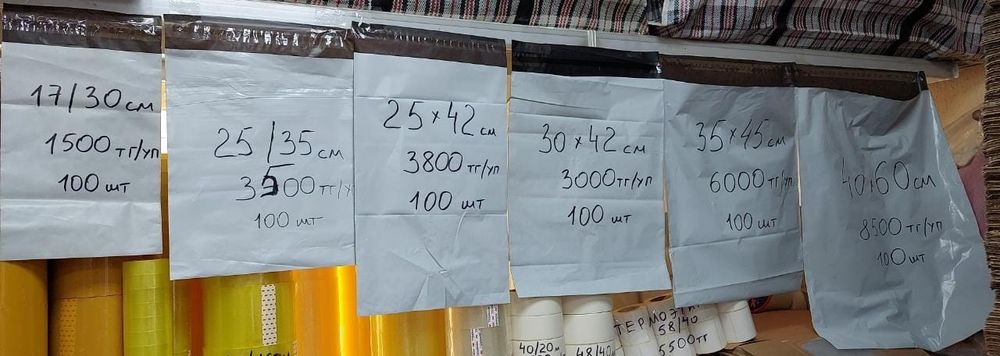 17/30 см
1500 тг/уп
100 шт
25/35 см
3500 тг/уп
100 шт
25×42 см
3800 тг/уп
100 шт
30×42 см
3000 тг/уп
100 шт
35×45 см
6000 тг/уп
100 шт
40×60 см
8500 тг/уп
100 шт
40/20
48/40
58/40
5500 тг